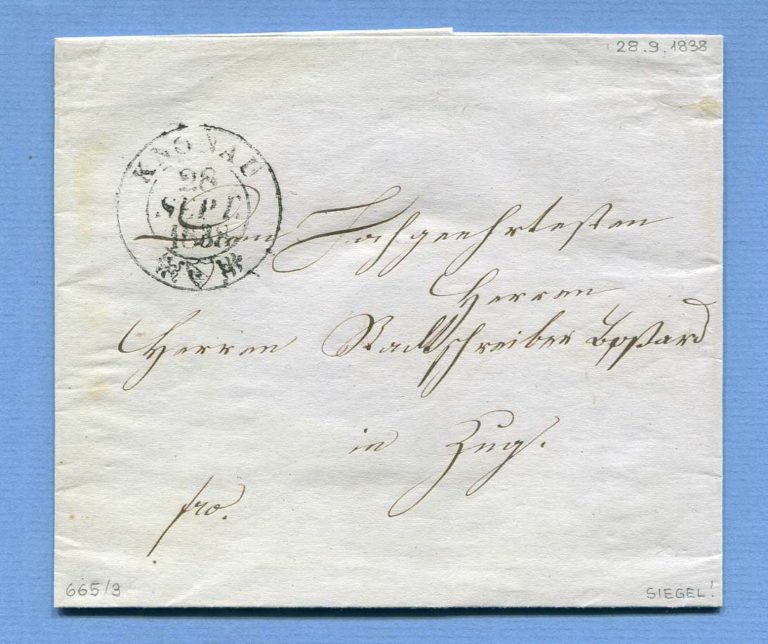 28.9.1838
KNONAU
28
SEPT.
1838
Dem Hochgeehrtesten
Herren
Herren Stadtschreiber Boßard
in Zug.
fro.
665/3
SIEGEL!